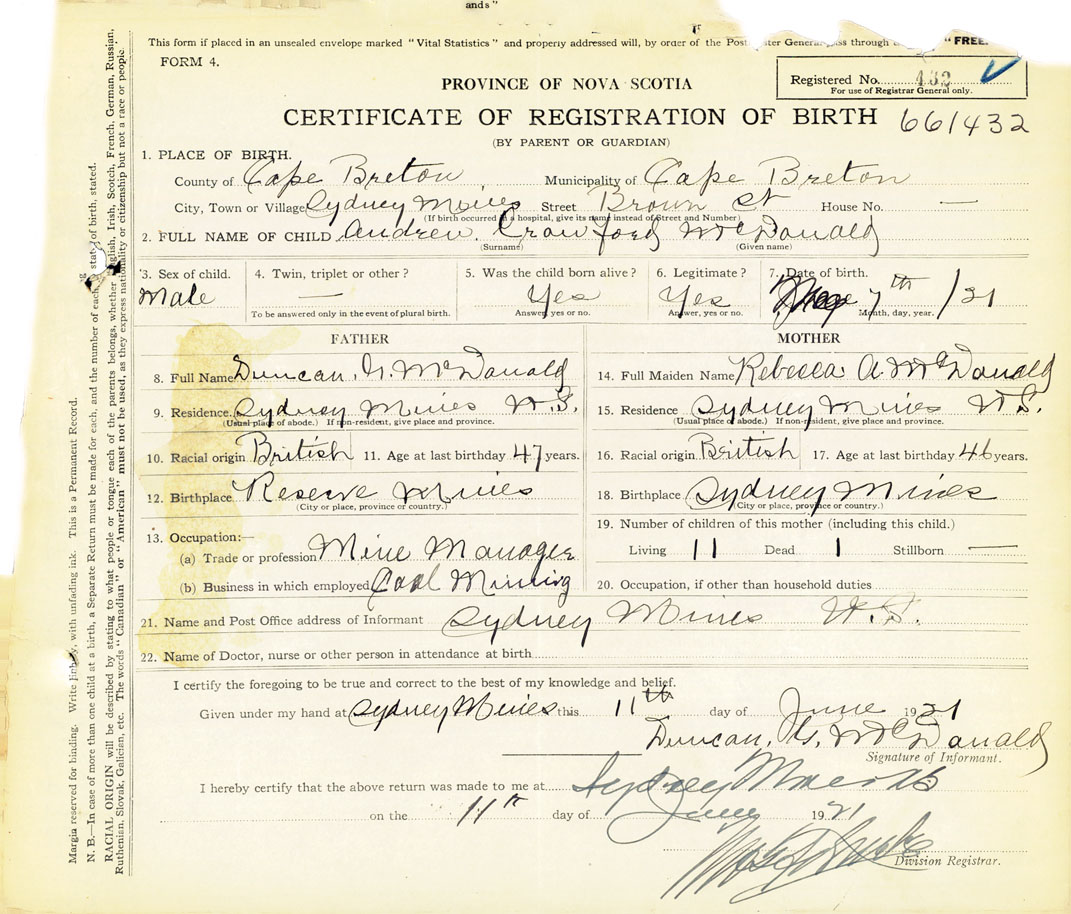 ands"
This form if placed in an unsealed envelope marked "Vital Statistics" and properly addressed will, by order of the Post ter General pass through "FREE.
FORM 4.
Registered No. 432
For use of Registrar General only.
PROVINCE OF NOVA SCOTIA
CERTIFICATE OF REGISTRATION OF BIRTH 661432
(BY PARENT OR GUARDIAN)
1. PLACE OF BIRTH.
County of Cape Breton Municipality of Cape Breton
City, Town or Village Sydney Mines Street Brown St House No. —
(If birth occurred in a hospital, give its name instead of Street and Number)
2. FULL NAME OF CHILD Andrew Crawford McDonald
(Surname) (Given name)
3. Sex of child. 4. Twin, triplet or other? 5. Was the child born alive? 6. Legitimate? 7. Date of birth.
Male — Yes Yes 7th /21
To be answered only in the event of plural birth. Answer, yes or no. Answer, yes or no. Month, day, year.
FATHER MOTHER
8. Full Name Duncan McDonald 14. Full Maiden Name Rebecca A. McDonald
9. Residence Sydney Mines N.S. 15. Residence Sydney Mines N.S.
(Usual place of abode.) If non-resident, give place and province. (Usual place of abode.) If non-resident, give place and province.
10. Racial origin British 11. Age at last birthday 47 years. 16. Racial origin British 17. Age at last birthday 46 years.
12. Birthplace Reserve Mines 18. Birthplace Sydney Mines
(City or place, province or country.) (City or place, province or country.)
13. Occupation:— 19. Number of children of this mother (including this child.)
(a) Trade or profession Mine Manager Living 11 Dead 1 Stillborn —
(b) Business in which employed Coal Mining 20. Occupation, if other than household duties
21. Name and Post Office address of Informant Sydney Mines N.S.
22. Name of Doctor, nurse or other person in attendance at birth
I certify the foregoing to be true and correct to the best of my knowledge and belief.
Given under my hand at Sydney Mines this 11th day of June 1921
Duncan McDonald
Signature of Informant.
I hereby certify that the above return was made to me at Sydney Mines NS
on the 11th day of June 1921
Division Registrar.
Margin reserved for binding. Write plainly, with unfading ink. This is a Permanent Record.
N. B.—In case of more than one child at a birth, a Separate Return must be made for each, and the number of each, state of birth, stated.
RACIAL ORIGIN will be described by stating to what people or tongue each of the parents belongs, whether English, Irish, Scotch, French, German, Russian,
Ruthenian, Slovak, Galician, etc. The words "Canadian" or "American" must not be used, as they express nationality or citizenship but not a race or people